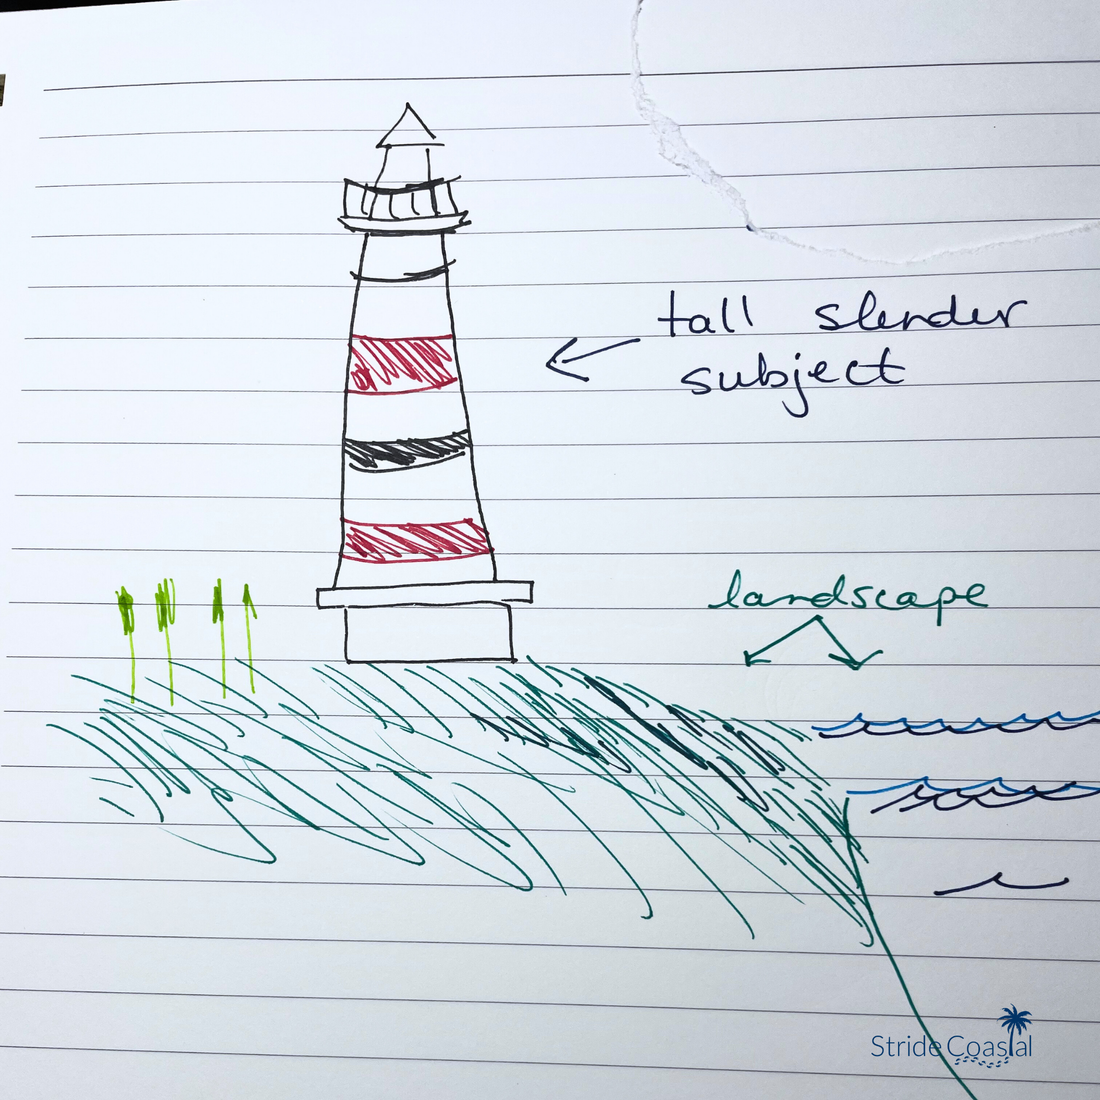 tall slender
subject
landscape
Stride Coastal